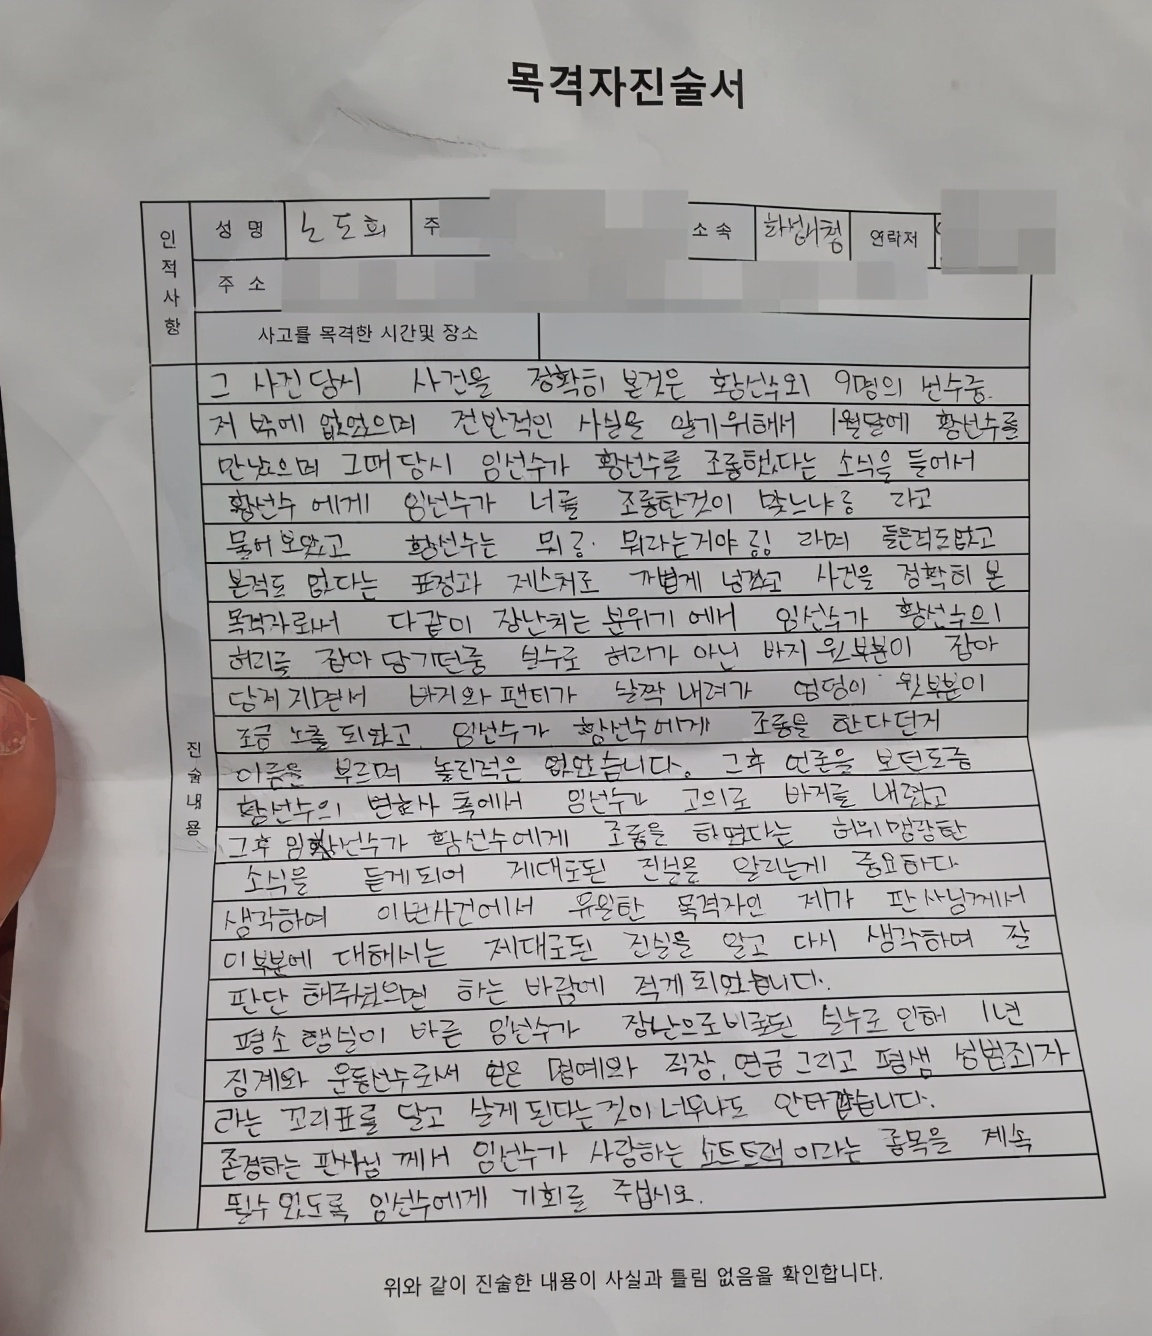 목격자진술서
인적사항
성 명 노도희 주 소 속 화성시청 연락처
주 소
사고를 목격한 시간및 장소
진술내용
그 사건당시 사건을 정확히 본것은 황선수외 9명의 선수중
저 밖에 없었으며 전반적인 사실을 알기위해서 1월달에 황선수를
만났으며 그때당시 임선수가 황선수를 조롱했다는 소식을 들어서
황선수 에게 임선수가 너를 조롱한것이 맞느냐? 라고
물어보았고 황선수는 뭐?. 뭐라는거야?! 라며 들은적도없고
본적도 없다는 표정과 제스처로 가볍게 넘겼고 사건을 정확히 본
목격자로서 다같이 장난치는 분위기 에서 임선수가 황선수의
허리를 잡아 당기던중 실수로 허리가 아닌 바지 윗부분이 잡아
당겨지면서 바지와 팬티가 살짝 내려가 엉덩이 윗부분이
조금 노출 되었고, 임선수가 황선수에게 조롱을 한다던지
이름을 부르며 놀린적은 없었습니다. 그후 언론을 보던도중
황선수의 변호사 측에서 임선수가 고의로 바지를 내렸고
그후 임선수가 황선수에게 조롱을 하였다는 허위맹랑한
소식을 듣게되어 제대로된 진실을 알리는게 중요하다
생각하여 이번사건에서 유일한 목격자인 제가 판사님께서
이부분에 대해서는 제대로된 진실을 알고 다시 생각하여 잘
판단 해주셨으면 하는 바람에 적게되었습니다.
평소 행실이 바른 임선수가 장난으로비롯된 실수로 인해 1년
징계와 운동선수로써 얻은 명예와 직장, 연금 그리고 평생 성범죄자
라는 꼬리표를 달고 살게 된다는것이 너무나도 안타깝습니다.
존경하는 판사님 께서 임선수가 사랑하는 쇼트트랙 이라는 종목을 계속
뛸수 있도록 임선수에게 기회를 주십시오.
위와 같이 진술한 내용이 사실과 틀림 없음을 확인합니다.